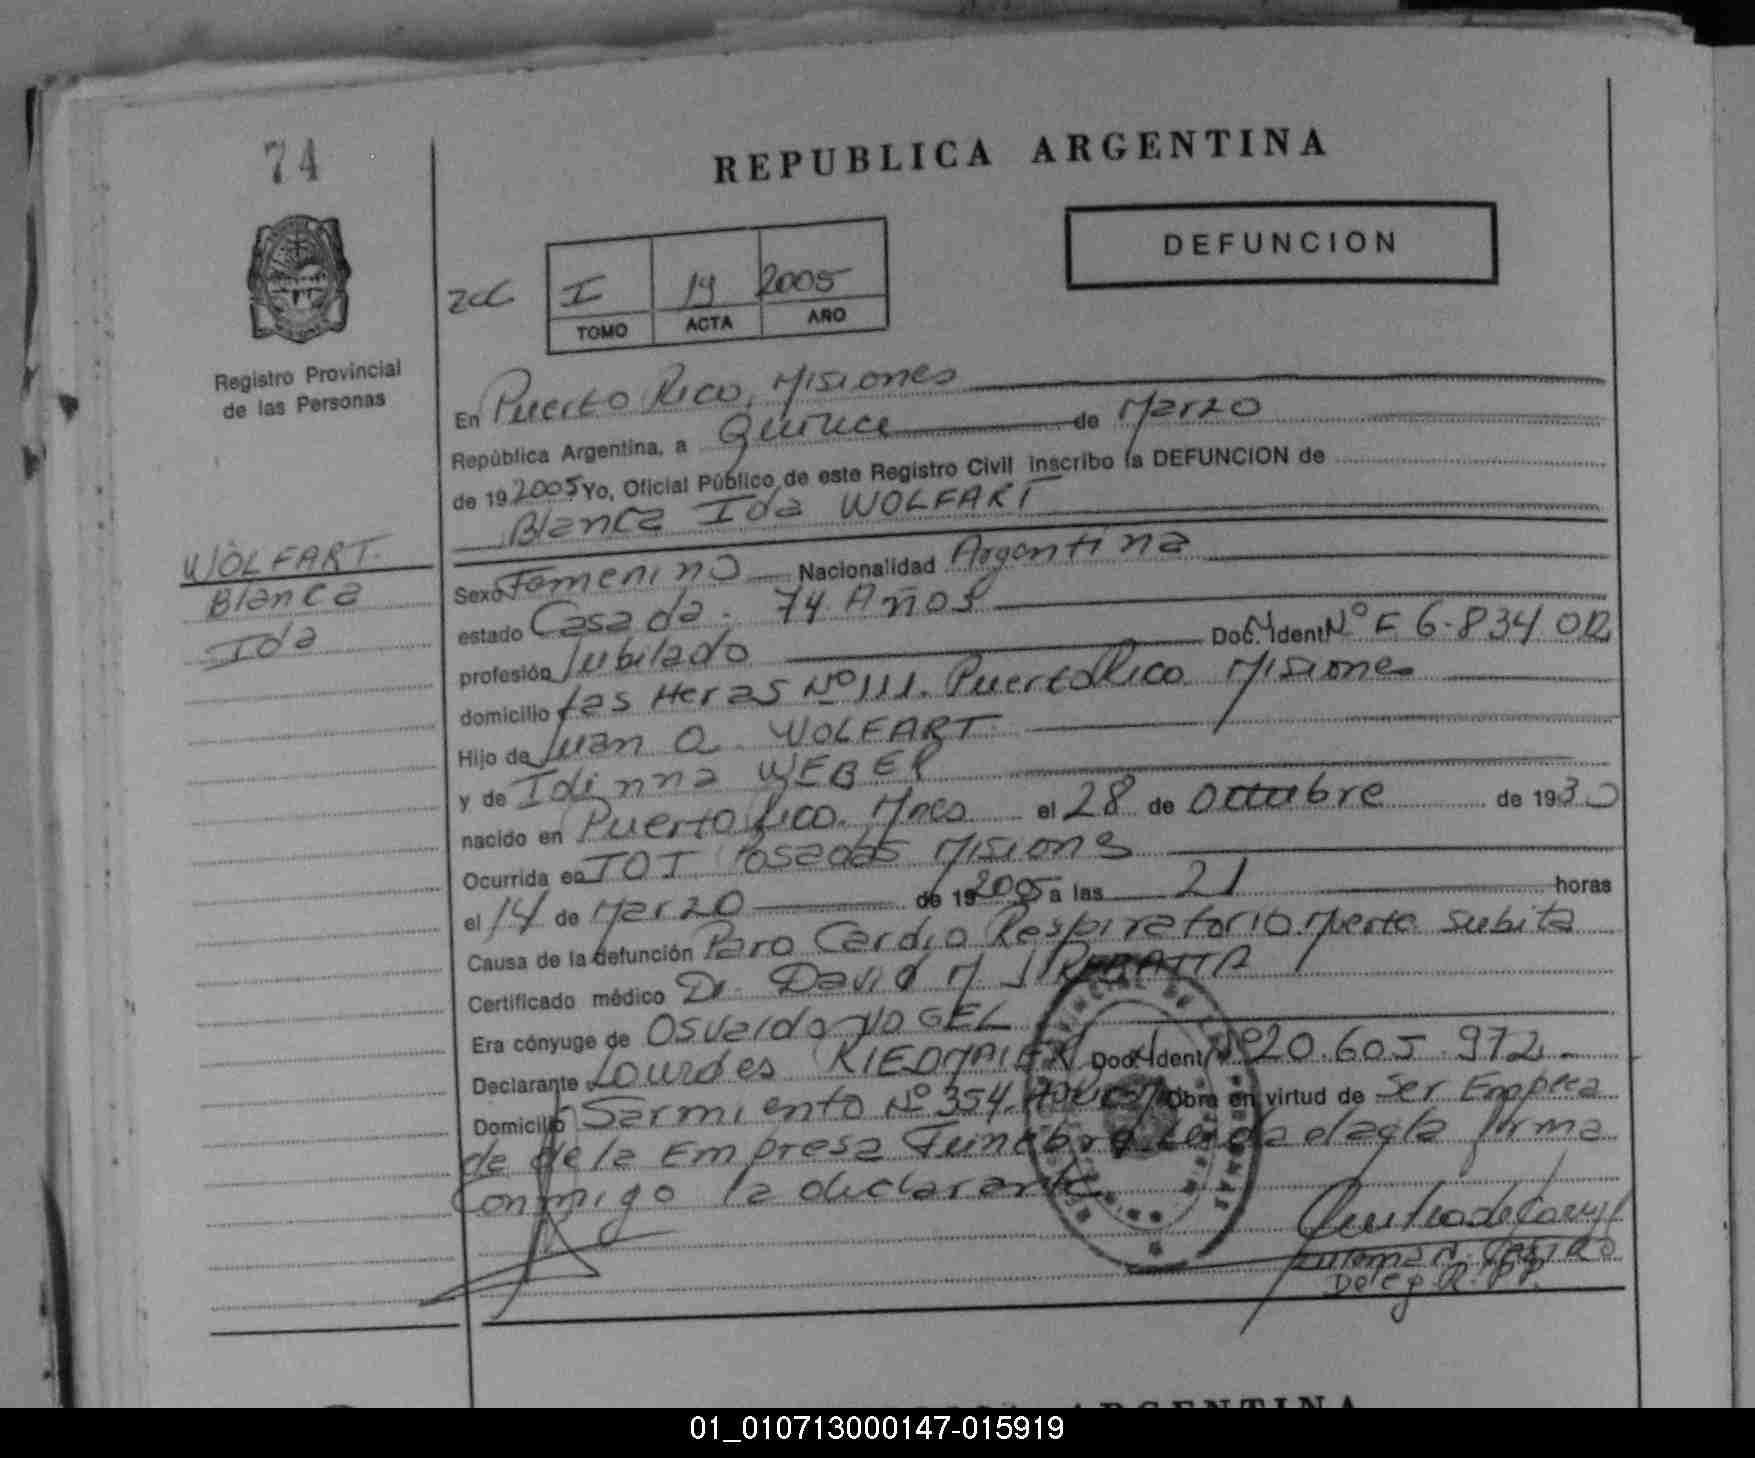 74
REPUBLICA ARGENTINA
DEFUNCION
I 14 2005
TOMO ACTA AÑO
Registro Provincial
de las Personas
En Puerto Rico, Misiones
República Argentina, a Quince de Marzo
de 19 2005 Yo, Oficial Público de este Registro Civil inscribo la DEFUNCION de
Blanca Ida WOLFART
WOLFART.
Blanca
Ida
Sexo Femenino Nacionalidad Argentina
estado Casada. 74 Años
profesión Jubilado Doc. Ident Nº F 6.834.012
domicilio Las Heras Nº 111. Puerto Rico. Misiones
Hijo de Juan O. WOLFART
y de Idinna WEBER
nacido en Puerto Rico. Mnes el 28 de Octubre de 1930
Ocurrida en IOT Posadas Misions
el 14 de Marzo de 19 2005 a las 21 horas
Causa de la defunción Paro Cardio Respiratorio. Muerte subita
Certificado médico Dr. David M.
Era cónyuge de Osvaldo VOGEL
Declarante Lourdes RIEDMAIER Doc. Ident Nº 20.605.972.-
Domicilio Sarmiento Nº 354. Obra en virtud de Ser Emplea
da de la Empresa Funebre Leida el acta firma
Conmigo la declarante
CASTRO
Deleg. R. PP.
ARGENTINA
01_010713000147-015919